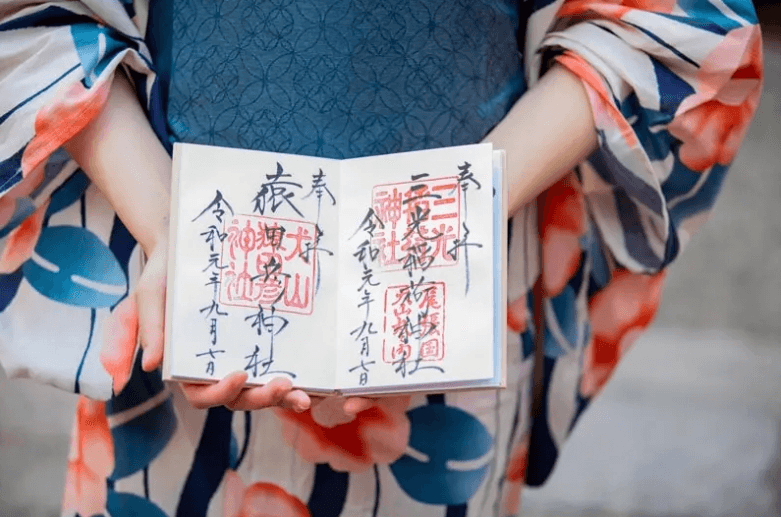 奉拝
三光稲荷神社
令和元年九月七日
三光
稲荷
神社
尾張国
犬山城内
奉拝
猿田彦神社
令和元年九月七日
犬山
猿田彦
神社